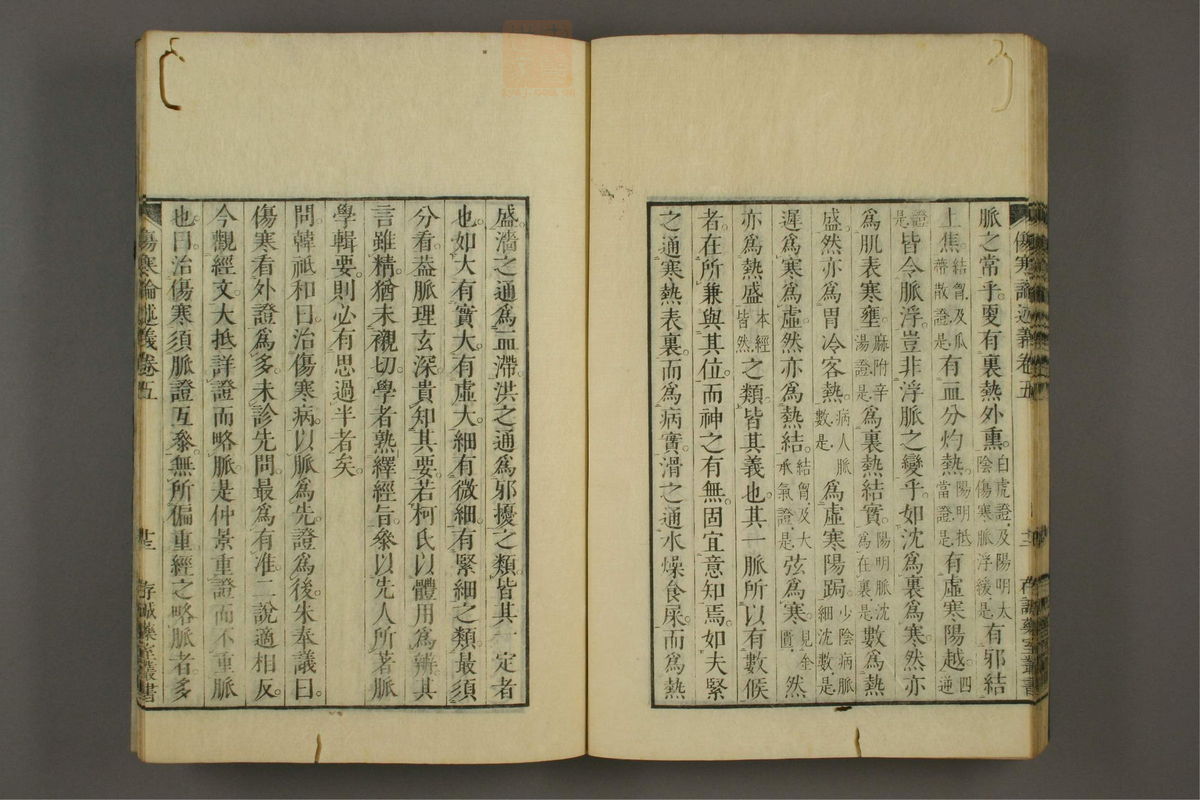 傷寒論述義卷五 存誠藥室叢書
脈之常乎。更有裏熱外熏。白虎證、及陽明大陰傷寒脈浮緩、是有邪結
上焦結胷、及瓜蔕散證、是有血分灼熱。陽明抵當證、是有虛寒陽越。四通
證是皆令脈浮。豈非浮脈之變乎。如沈爲裏爲寒。然亦
爲肌表寒壅。麻附辛湯證、是爲裏熱結實。陽明脈沈爲在裏、是數爲熱
盛。然亦爲胃冷客熱。病人脈數、是爲虛寒陽跼。少陰病脈細沈數、是
遲爲寒爲虛。然亦爲熱結。結胷、及大承氣證、是弦爲寒。見金匱然
亦爲熱盛本經皆然之類。皆其義也。其一脈所以有數候
者。在所兼與其位。而神之有無。固宜意知焉。如夫緊
之通寒熱表裏。而爲病實。滑之通水燥食屎。而爲熱
盛。濇之通爲血滯。洪之通爲邪擾之類。皆其一定者
也。如大有實大。有虛大。細有微細。有緊細之類。最須
分看。葢脈理玄深。貴知其要。若柯氏以體用爲辨。其
言雖精。猶未襯切。學者熟繹經旨。參以先人所著脈
學輯要。則必有思過半者矣。
問。韓祗和曰。治傷寒病。以脈爲先。證爲後。朱奉議曰。
傷寒看外證爲多。未診先問。最爲有准。二說適相反。
今觀經文。大抵詳證而略脈。是仲景重證而不重脈
也。曰。治傷寒須脈證互參。無所偏重。經之略脈者。多
傷寒論述義卷五 存誠藥室叢書